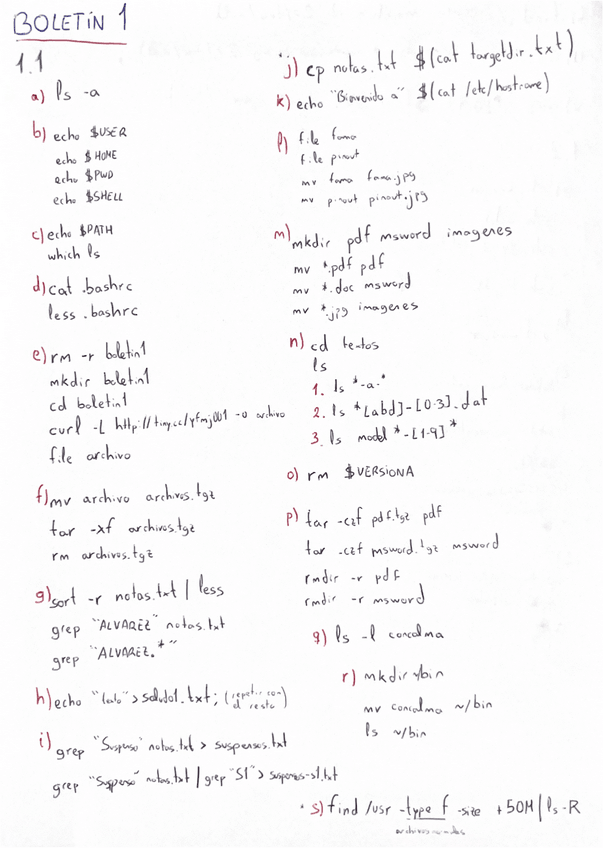 BOLETÍN 1
1.1
a) ls -a
b) echo $USER
echo $HOME
echo $PWD
echo $SHELL
c) echo $PATH
which ls
d) cat .bashrc
less .bashrc
e) rm -r boletin1
mkdir boletin1
cd boletin1
curl -L http://tiny.cc/yfmj001 -o archivo
file archivo
f) mv archivo archivos.tgz
tar -xf archivos.tgz
rm archivos.tgz
g) sort -r notas.txt | less
grep "ALVAREZ" notas.txt
grep "ALVAREZ.*"
h) echo > saludo1.txt; (repetir con el resto)
i) grep "Suspenso" notas.txt > suspensos.txt
grep "Suspenso" notas.txt | grep "S1" > suspensos-s1.txt
j) cp notas.txt $(cat targetdir.txt)
k) echo "Bienvenido a" $(cat /etc/hostname)
l) file fama
file pinout
mv fama fama.jpg
mv pinout pinout.jpg
m) mkdir pdf msword imagenes
mv *.pdf pdf
mv *.doc msword
mv *.jpg imagenes
n) cd textos
ls
1. ls *-a-*
2. ls *[abd]-[0-3].dat
3. ls model*-[1-9]*
o) rm $VERSIONA
p) tar -czf pdf.tgz pdf
tar -czf msword.tgz msword
rmdir -r pdf
rmdir -r msword
q) ls -l concalma
r) mkdir ~/bin
mv concalma ~/bin
ls ~/bin
s) find /usr -type f -size +50M | ls -R